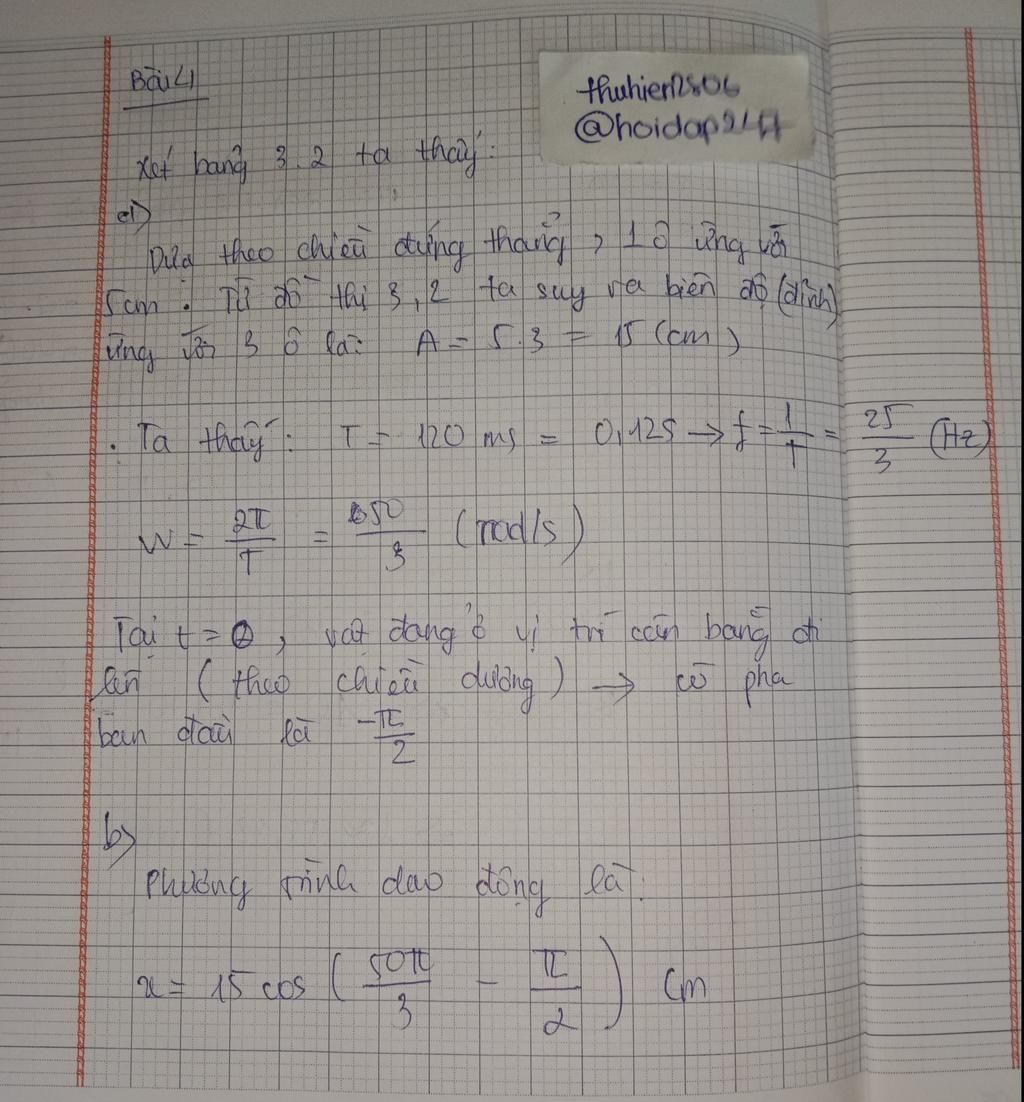 Bài 4
thuhien2806
@hoidap247
Xét bảng 3.2 ta thấy:
a)
Dựa theo chiều đứng thẳng, 1 ô ứng với
5cm. Từ đồ thị 3,2 ta suy ra biên độ (đỉnh)
ứng với 3 ô là: A = 5.3 = 15 (cm)
. Ta thấy: T = 120 ms = 0,12s → f = 1/T = 25/3 (Hz)
W = 2π/T = 50/3 (rad/s)
Tại t = 0, vật đang ở vị trí cân bằng đi
lên (theo chiều dương) → có pha
ban đầu là -π/2
b)
Phương trình dao động là:
x = 15 cos (50π/3 - π/2) cm